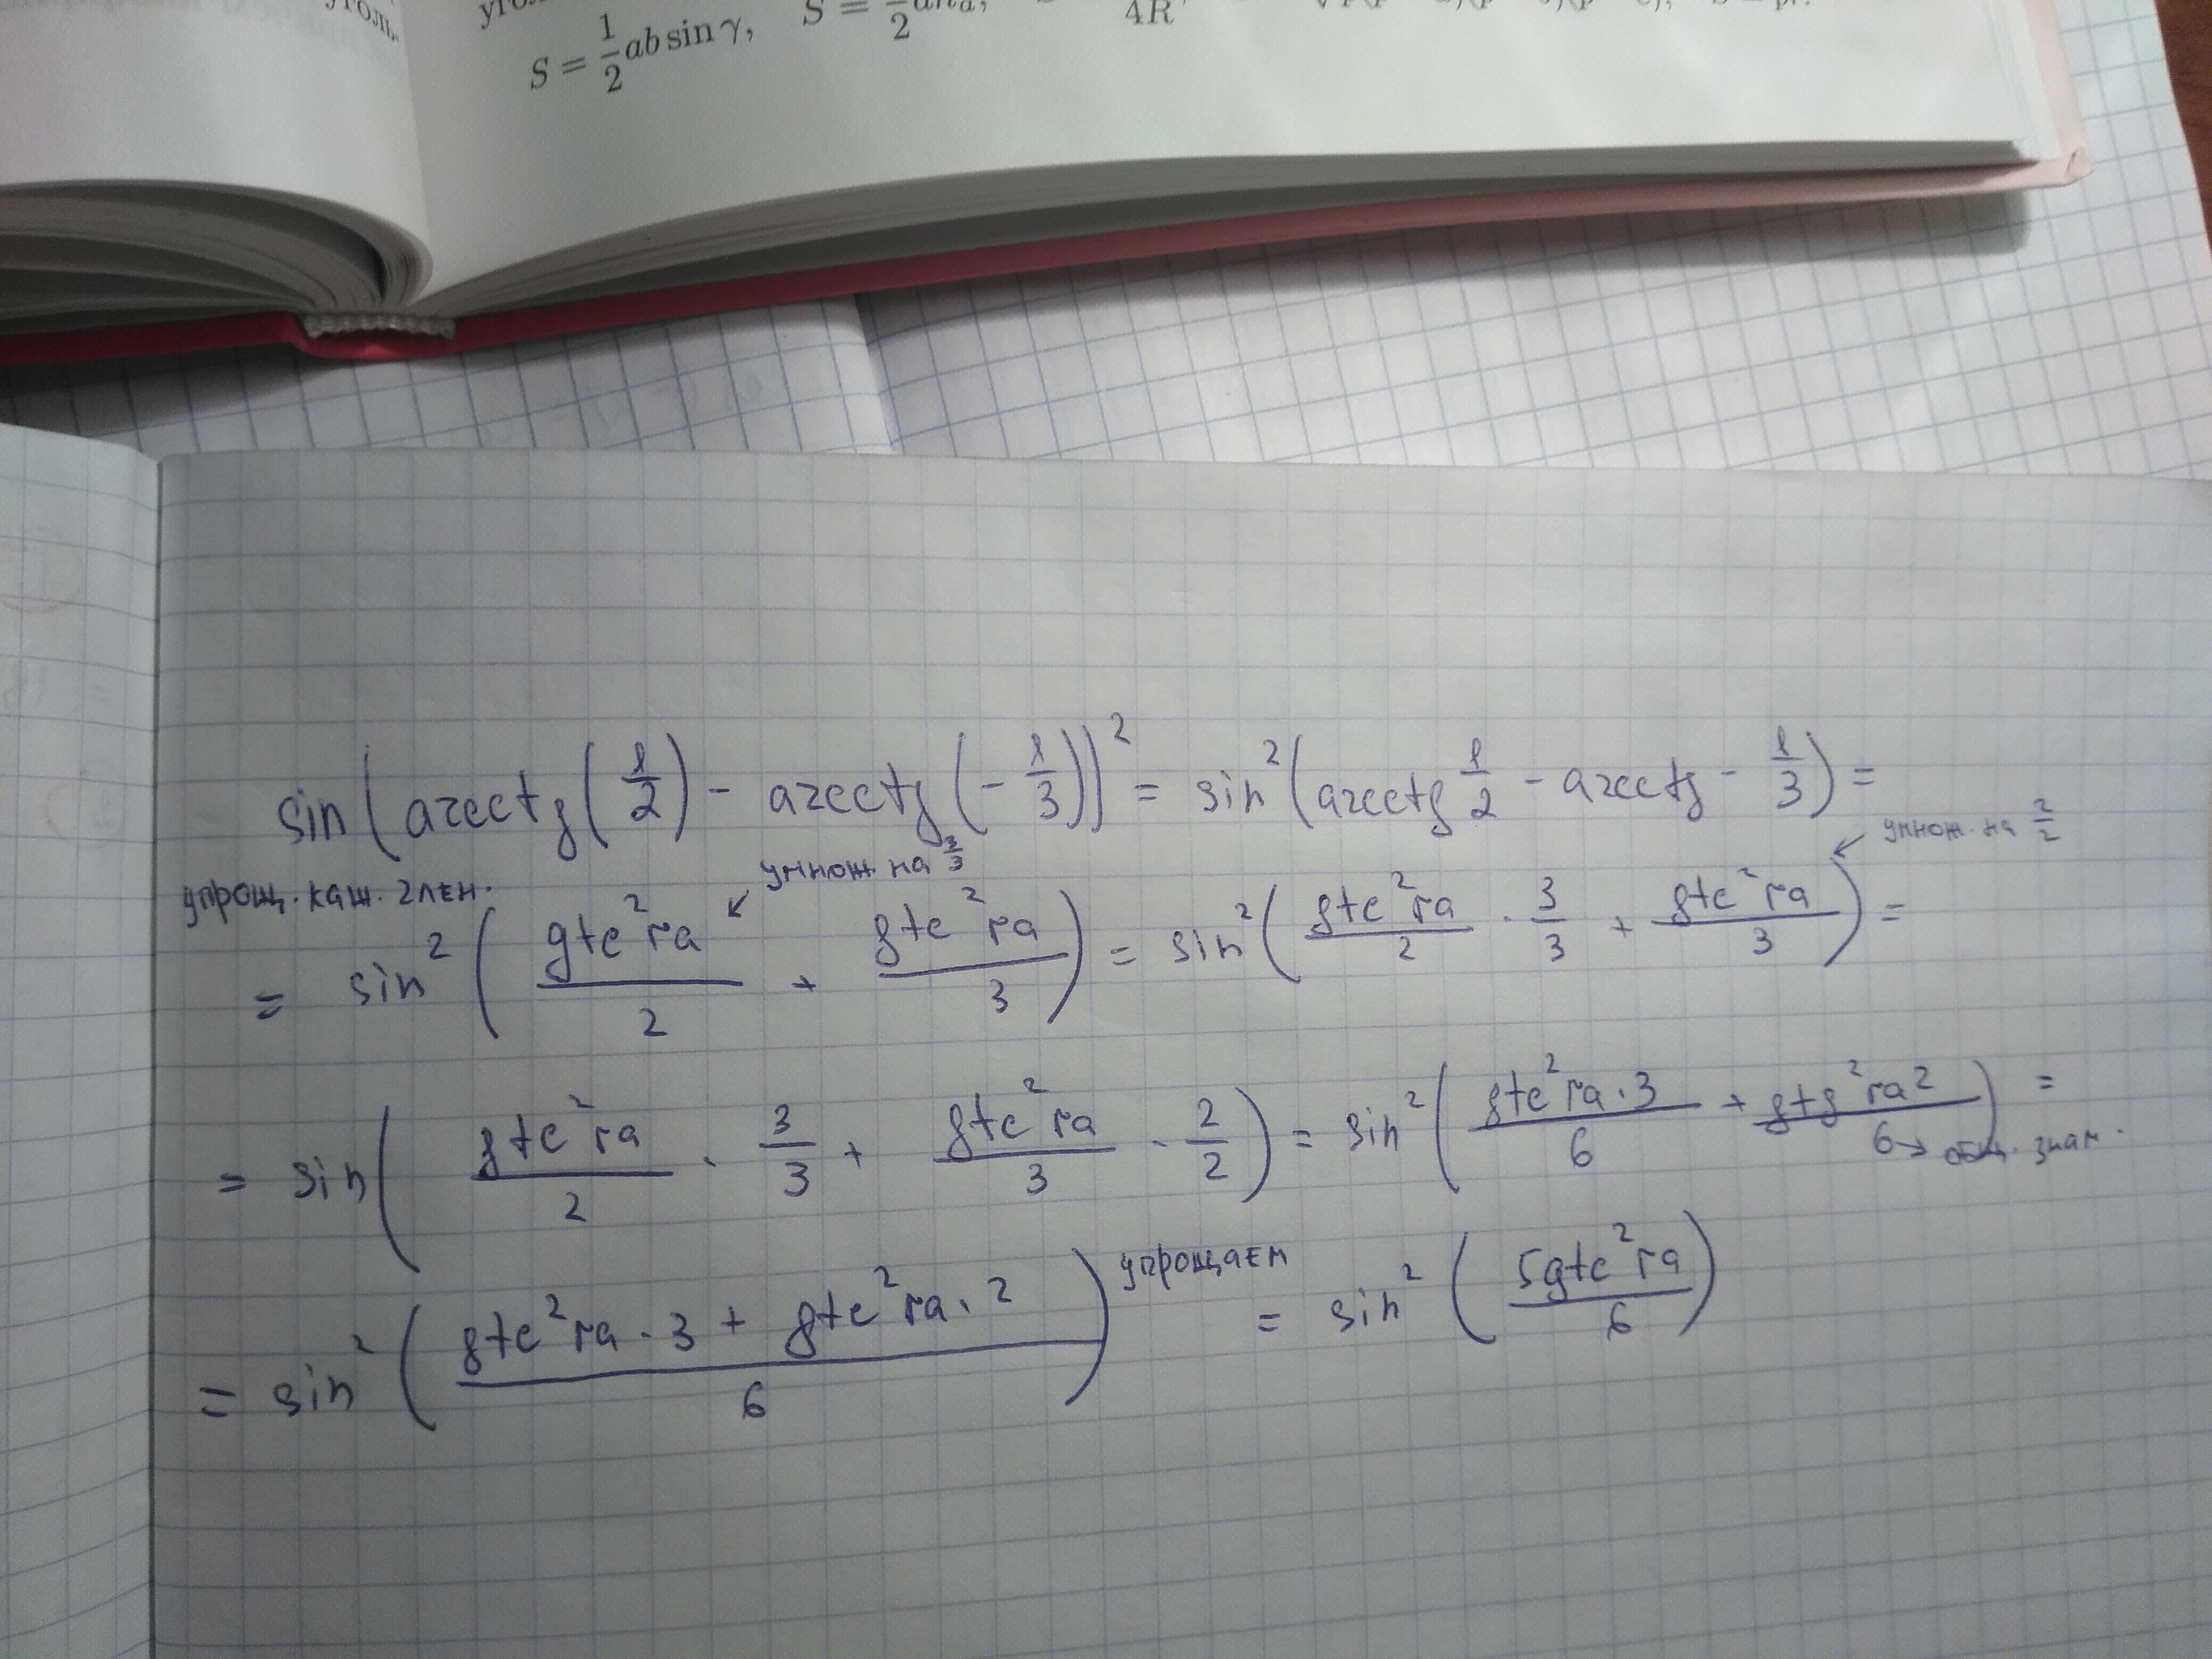 уголь-
S = 1/2 ab sin γ, S = 1/2 4R
sin(arcctg(1/2) - arcctg(-1/3))² = sin²(arcctg 1/2 - arcctg - 1/3) =
упрощ. каж. член. умнож. на 3/3 умнож. на 2/2
= sin²(gtc²ra/2 + gtc²ra/3) = sin²(gtc²ra/2 · 3/3 + gtc²ra/3) =
= sin(gtc²ra/2 · 3/3 + gtc²ra/3 · 2/2) = sin²(gtc²ra·3/6 + gtg²ra2/6) =
→ общ. знам.
= sin²((gtc²ra · 3 + gtc²ra · 2)/6) упрощаем = sin²(5gtc²ra/6)